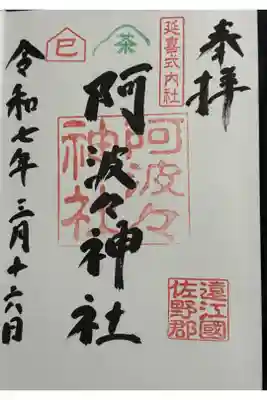 奉拝
延喜式内社
阿波々神社
阿波々
神社
茶
巳
遠江國
佐野郡
令和七年三月十六日